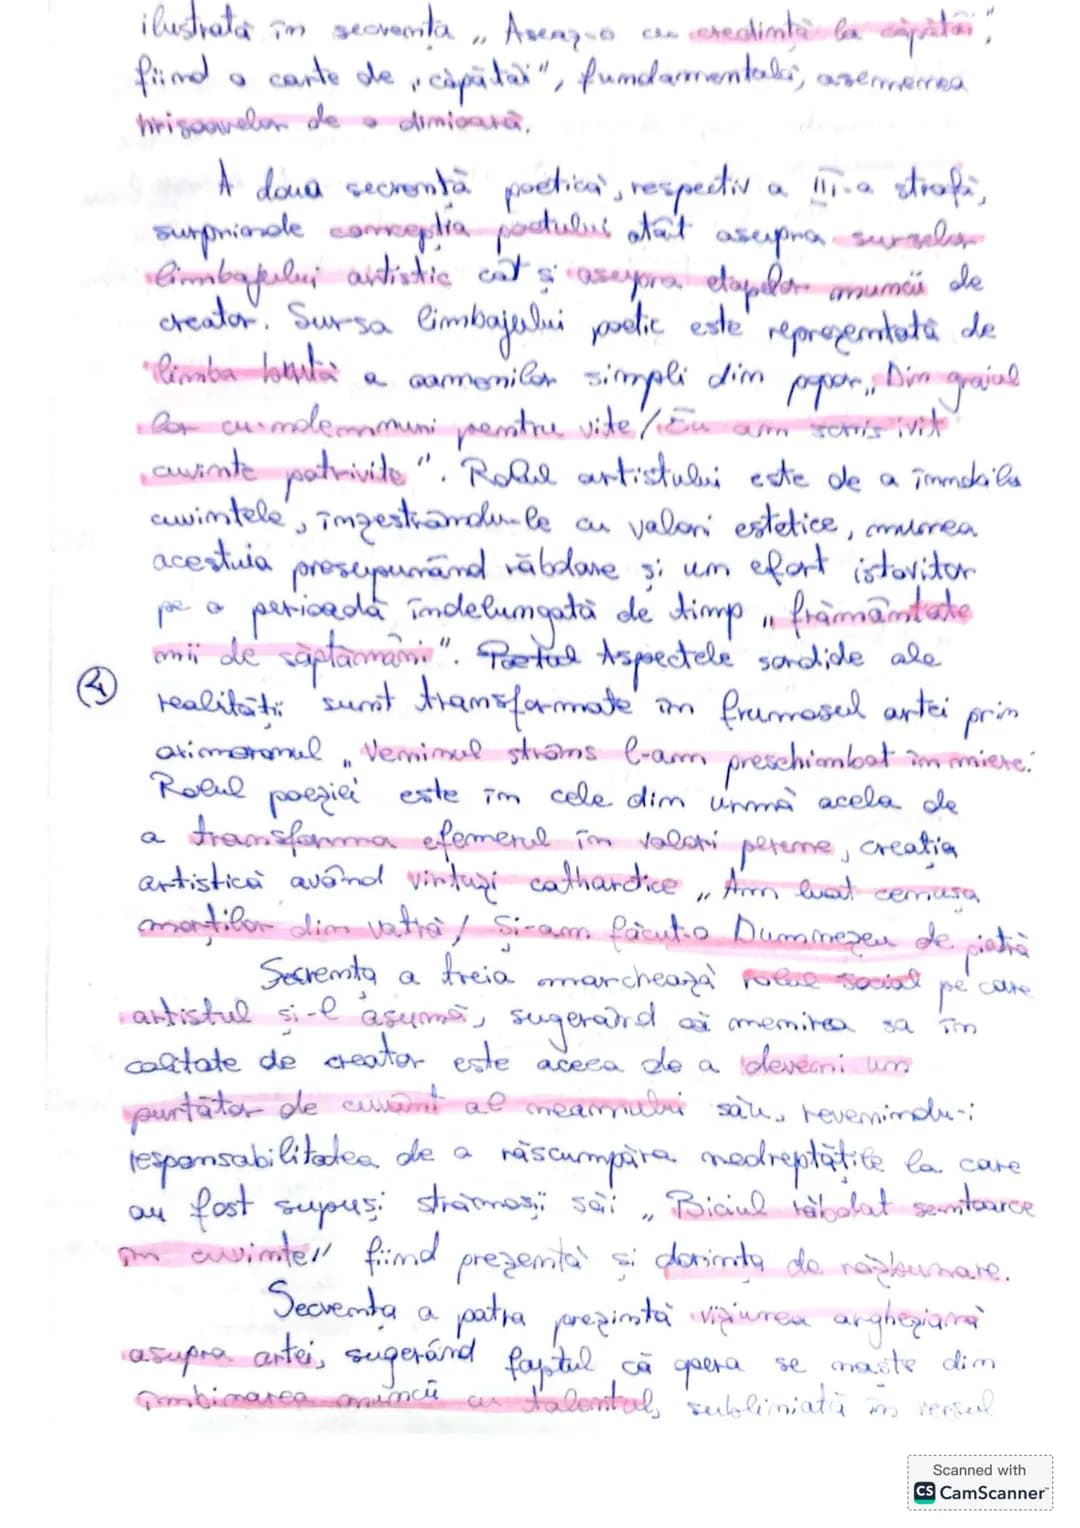 ilustrată în secvența „Așeaz-o cu credință la căpătâi",
fiind o carte de „căpătâi", fundamentală, asemenea
hrisoavelor de o dinioară.
A doua secvență poetică, respectiv a III-a strofă,
surprinde concepția poetului atât asupra surselor
limbajului artistic cât și asupra etapelor muncii de
creator. Sursa limbajului poetic este reprezentată de
limba a oamenilor simpli din popor „Din graiul
lor cu-ndemnuri pentru vite / Eu am scris ivit
cuvinte potrivite". Rolul artistului este de a înnobila
cuvintele, înzestrându-le cu valori estetice, munca
acestuia presupunând răbdare și un efort istovitor
pe o perioadă îndelungată de timp „frământate
mii de săptămâni". Poetul Aspectele sordide ale
④ realității sunt transformate în frumosul artei prin
oximoronul „Veninul strâns l-am preschimbat în miere."
Rolul poeziei este în cele din urmă acela de
a transforma efemerul în valori perene, creația
artistică având virtuți cathartice „Am luat cenușa
morților din vatră / Și-am făcut-o Dumnezeu de piatră
Secvența a treia marchează rolul social pe care
artistul și-l asumă, sugerând că menirea sa în
calitate de creator este aceea de a deveni un
purtător de cuvânt al neamului său, revenindu-i
responsabilitatea de a răscumpăra nedreptățile la care
au fost supuși strămoșii săi „Biciul răbdat se-ntoarce
în cuvinte" fiind prezentă și dorința de răzbunare.
Secvența a patra prezintă viziunea argheziană
asupra artei, sugerând faptul că opera se naște din
îmbinarea muncii cu talentul, subliniată în versul
Scanned with
CS CamScanner